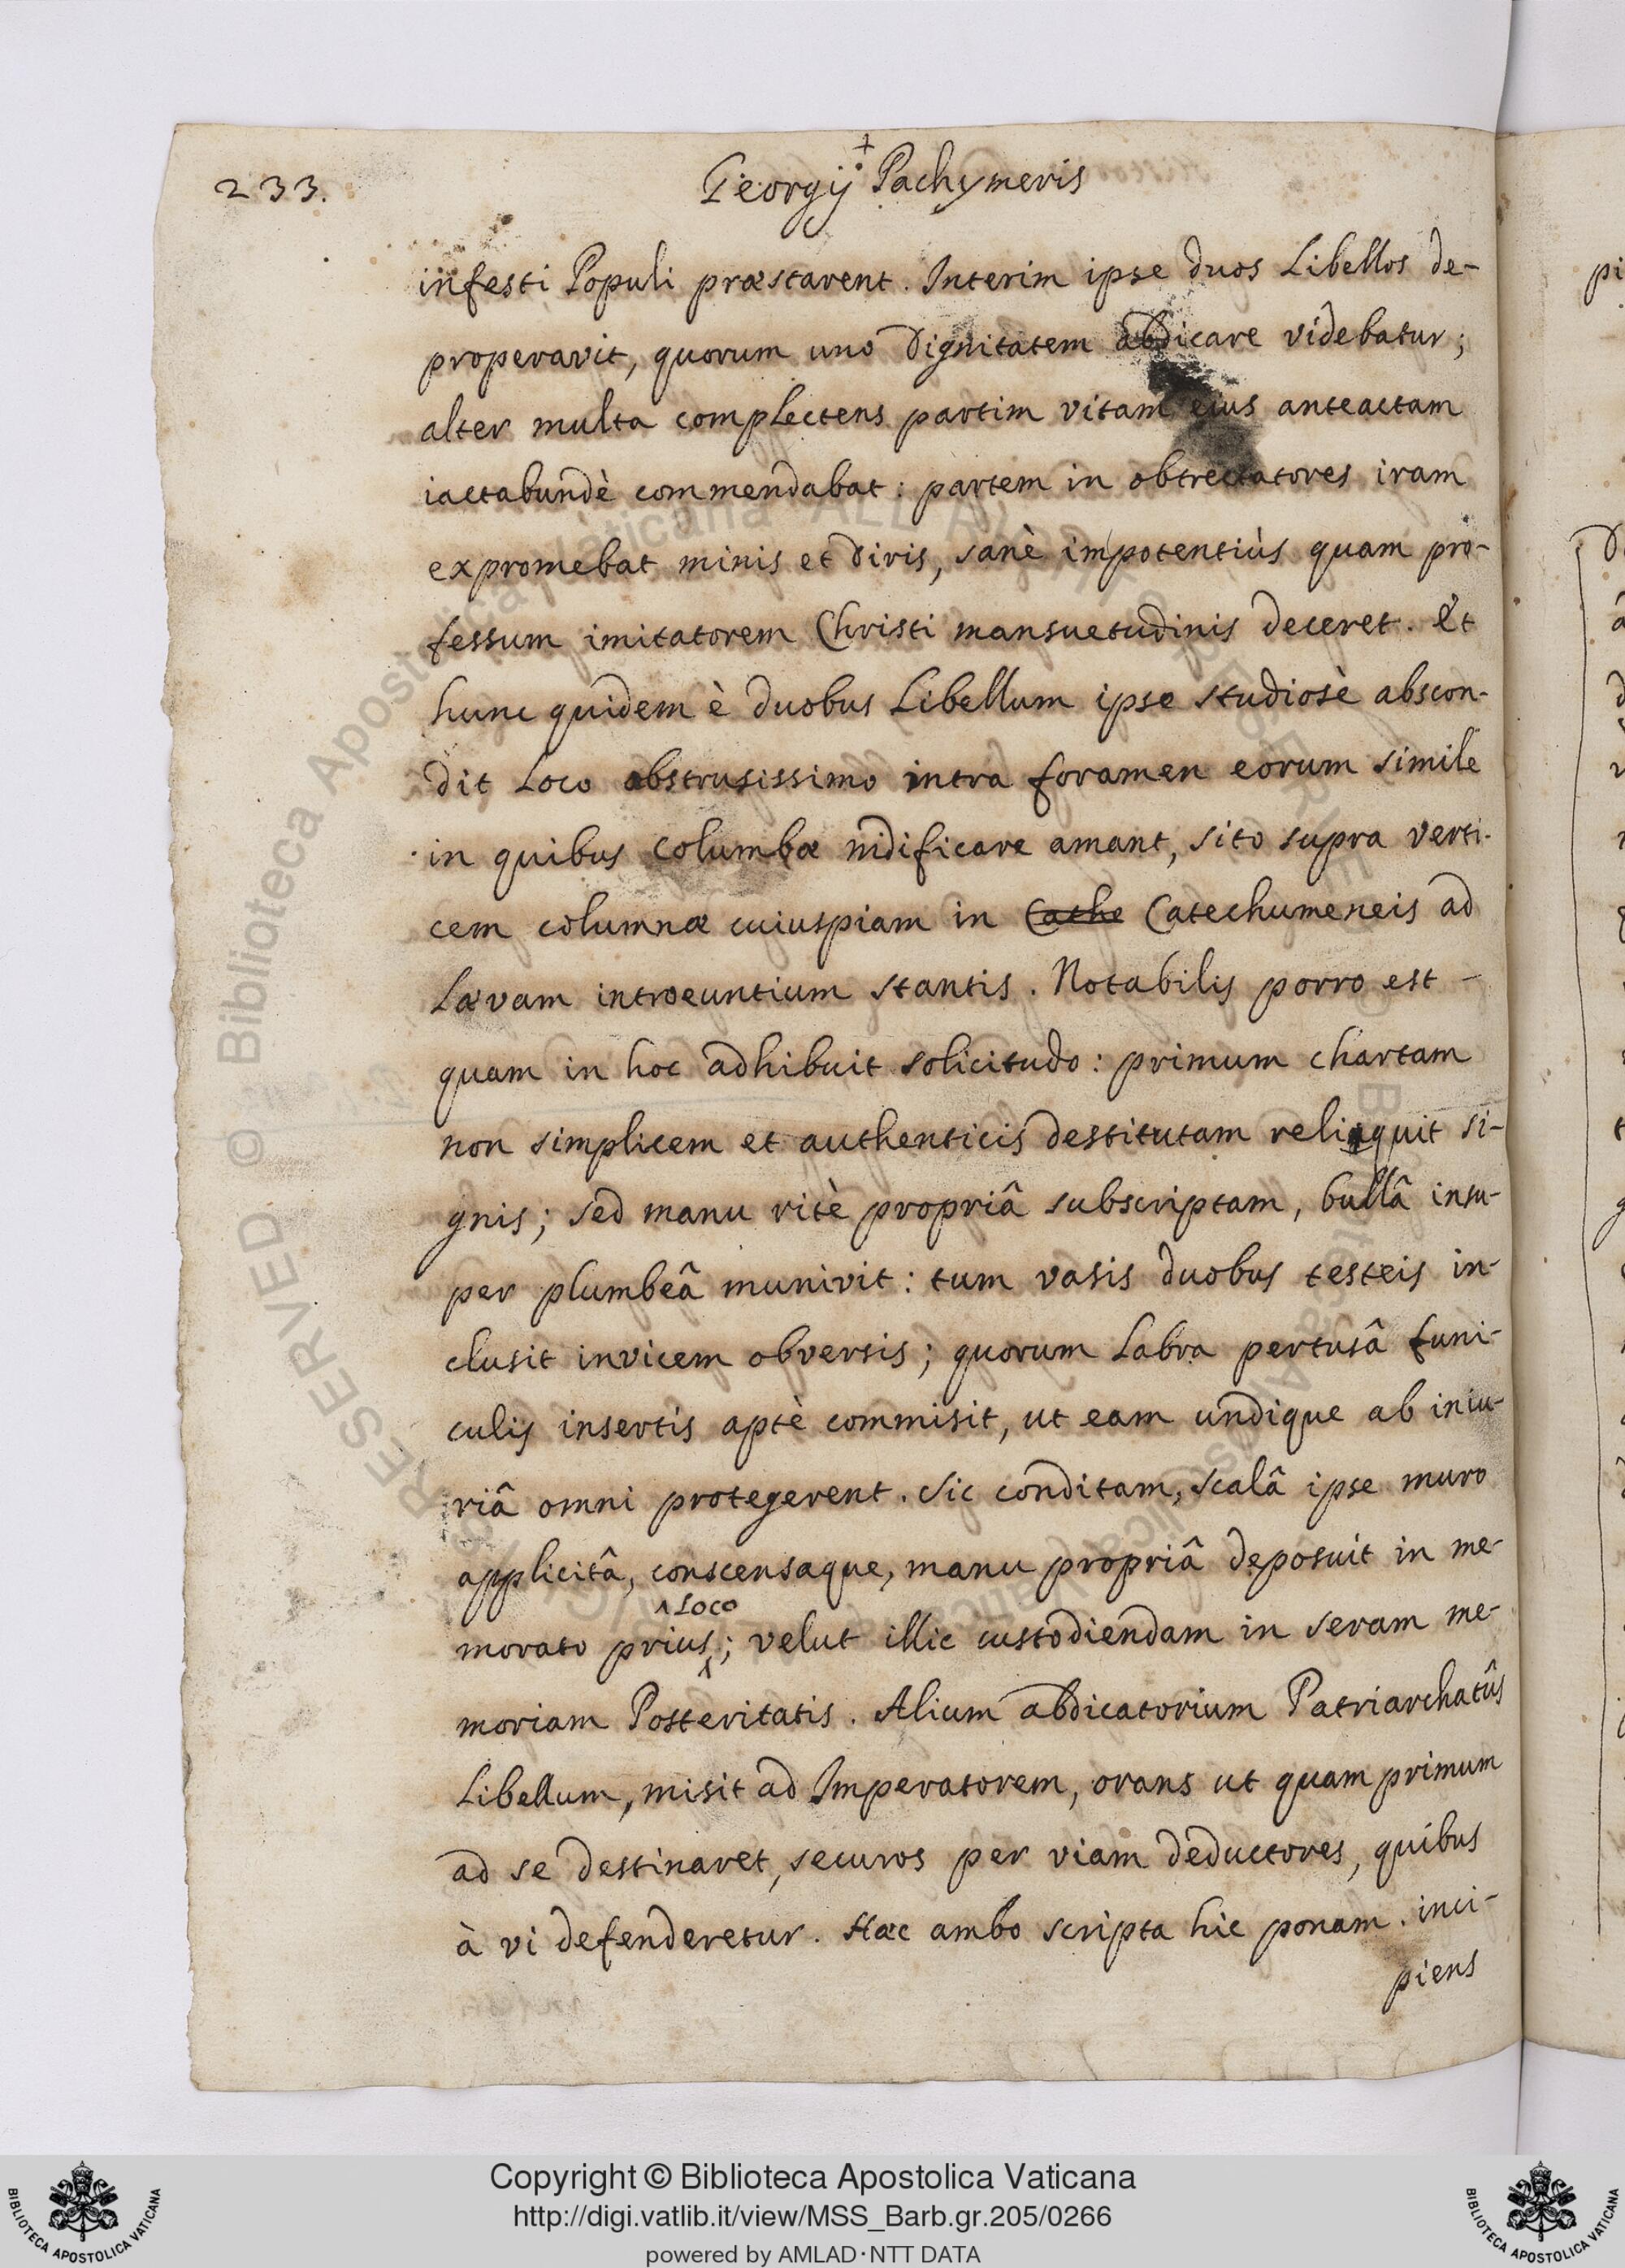 233.
+
Georgij Pachymeris
infesti Populi præstarent. Interim ipse duos Libellos de-
properavit, quorum uno Dignitatem abdicare videbatur;
alter multa complectens partim vitam eius anteactam
iactabundè commendabat: partem in obtrectatores iram
expromebat minis et diris, sanè impotentiùs quam pro-
fessum imitatorem Christi mansuetudinis deceret. Et
hunc quidem è duobus Libellum ipse studiosè abscon-
dit Loco abstrusissimo intra foramen eorum simile
in quibus columbæ nidificare amant, sito supra verti-
cem columnæ cuiuspiam in Cathe Catechumeneis ad
Lævam introeuntium stantis. Notabilis porro est -
quam in hoc adhibuit solicitudo: primum chartam
non simplicem et authenticis destitutam reliquit si-
gnis; sed manu ritè propriâ subscriptam, bullâ insu-
per plumbeâ munivit: tum vasis duobus testeis in-
clusit invicem obversis; quorum Labra pertusâ funi-
culis insertis aptè commisit, ut eam undique ab iniu-
riâ omni protegerent. Sic conditam, scalâ ipse muro
applicitâ, conscensaque, manu propriâ deposuit in me-
^ Loco
morato prius^; velut illic custodiendam in seram me-
moriam Posteritatis. Alium abdicatorium Patriarchatûs
Libellum, misit ad Imperatorem, orans ut quam primum
ad se destinaret, securos per viam deductores, quibus
à vi defenderetur. Hæc ambo scripta hic ponam. inci-
piens
pi
© Biblioteca Apostolica Vaticana ALL RIGHTS RESERVED
Copyright © Biblioteca Apostolica Vaticana
http://digi.vatlib.it/view/MSS_Barb.gr.205/0266
powered by AMLAD·NTT DATA
BIBLIOTECA APOSTOLICA VATICANA
BIBLIOTECA APOSTOLICA VATICANA